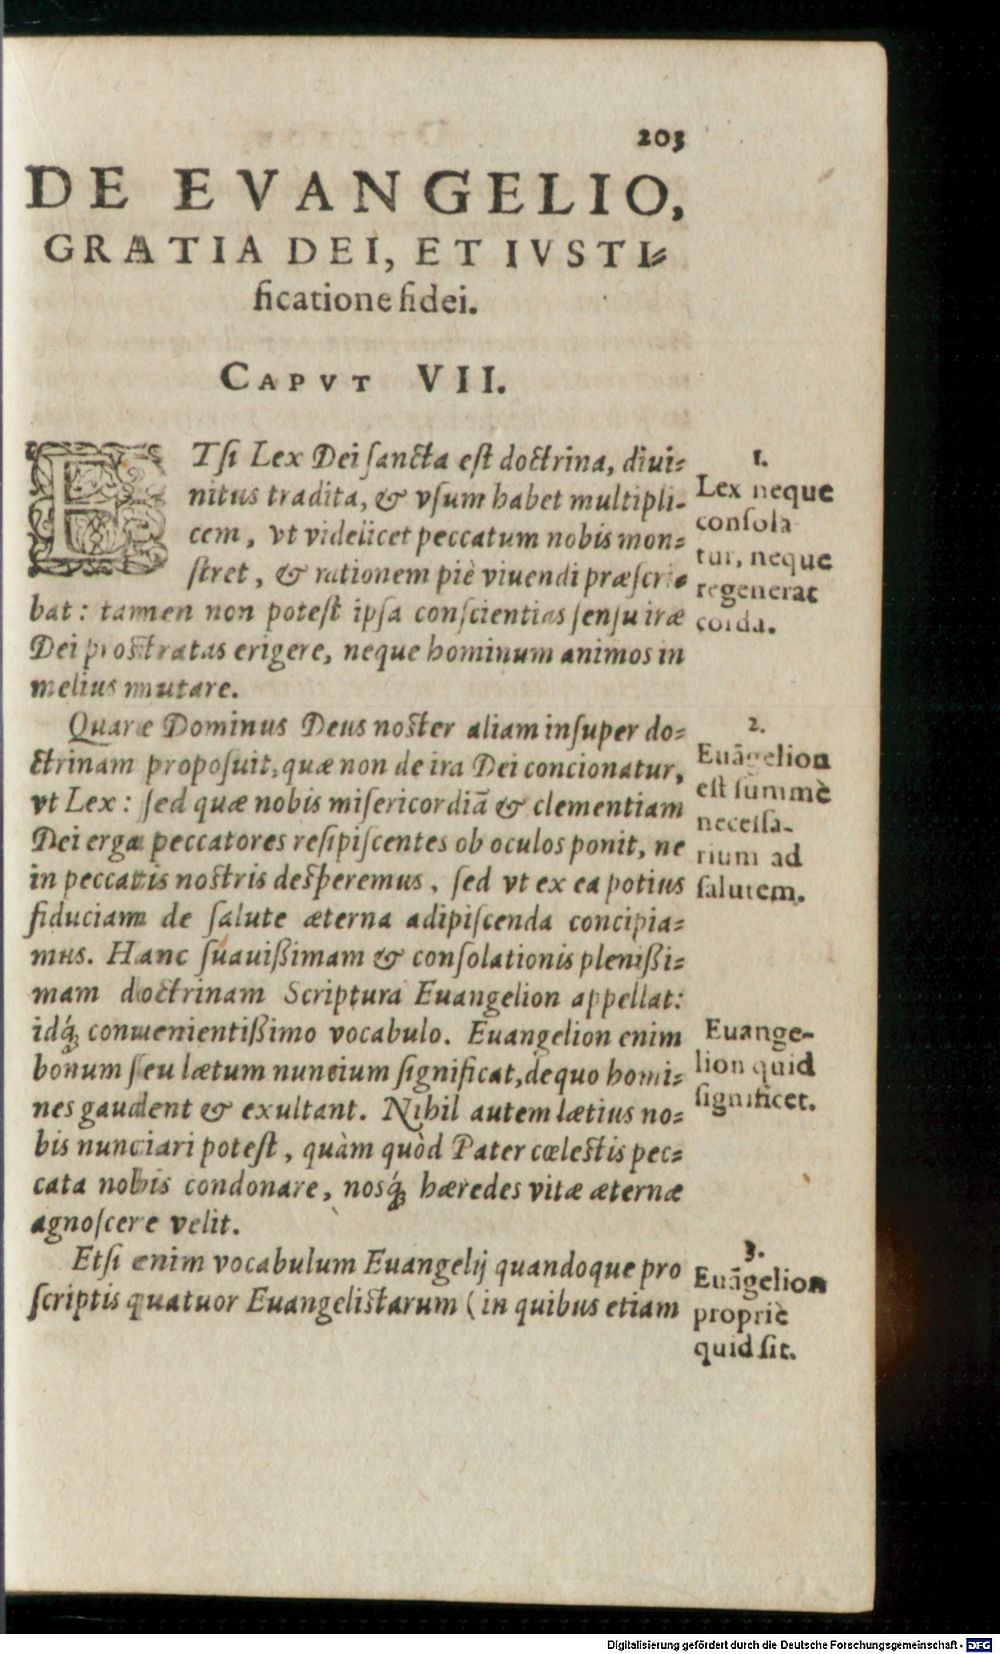 203
DE EVANGELIO,
GRATIA DEI, ET IVSTI-
ficatione fidei.
CAPVT VII.
ETſi Lex Dei ſancta eſt doctrina, diui-
nitus tradita, & vſum habet multipli-
cem, vt videlicet peccatum nobis mon-
ſtret, & rationem piè viuendi præſcri-
bat: tamen non poteſt ipſa conſcientias ſenſu iræ
Dei proſtratas erigere, neque hominum animos in
melius mutare.
1.
Lex neque
conſola
tur, neque
regenerat
corda.
Quare Dominus Deus noſter aliam inſuper do-
ctrinam propoſuit, quæ non de ira Dei concionatur,
vt Lex: ſed quæ nobis miſericordiã & clementiam
Dei erga peccatores reſipiſcentes ob oculos ponit, ne
in peccatis noſtris deſperemus, ſed vt ex ea potius
fiduciam de ſalute æterna adipiſcenda concipia-
mus. Hanc ſuauißimam & conſolationis plenißi-
mam doctrinam Scriptura Euangelion appellat:
idq́; conuenientißimo vocabulo. Euangelion enim
bonum ſeu lætum nuncium ſignificat, de quo homi-
nes gaudent & exultant. Nihil autem lætius no-
bis nunciari poteſt, quàm quòd Pater cœleſtis pec-
cata nobis condonare, nosq́; hæredes vitæ æternæ
agnoſcere velit.
2.
Euãgelion
eſt ſummè
neceſſa-
rium ad
ſalutem.
Euange-
lion quid
ſignificet.
Etſi enim vocabulum Euangelij quandoque pro
ſcriptis quatuor Euangeliſtarum (in quibus etiam
3.
Euãgelion
propriè
quid ſit.
Digitalisierung gefördert durch die Deutsche Forschungsgemeinschaft - DFG